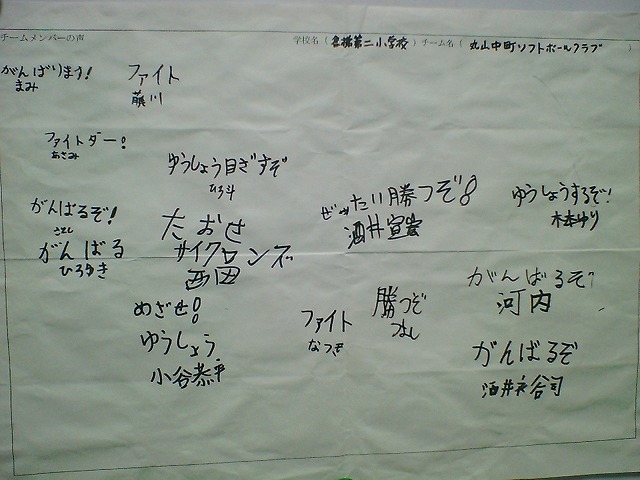 チームメンバーの声
学校名（ 名張第二小学校 ）チーム名（ 丸山中町ソフトボールクラブ ）
がんばります!
まみ
ファイト
藤川
ファイトダー!
あさみ
ゆうしょう目ざすぞ
ひろ斗
ぜったい勝つぞ!
酒井宣宏
ゆうしょうするぞ!
木本ゆり
がんばるぞ!
さとし
がんばる
ひろゆき
たおせ
サイクロンズ
西田
めざせ!
ゆうしょう
小谷恭平
ファイト
なつき
勝つぞ
つよし
がんばるぞ
河内
がんばるぞ
酒井